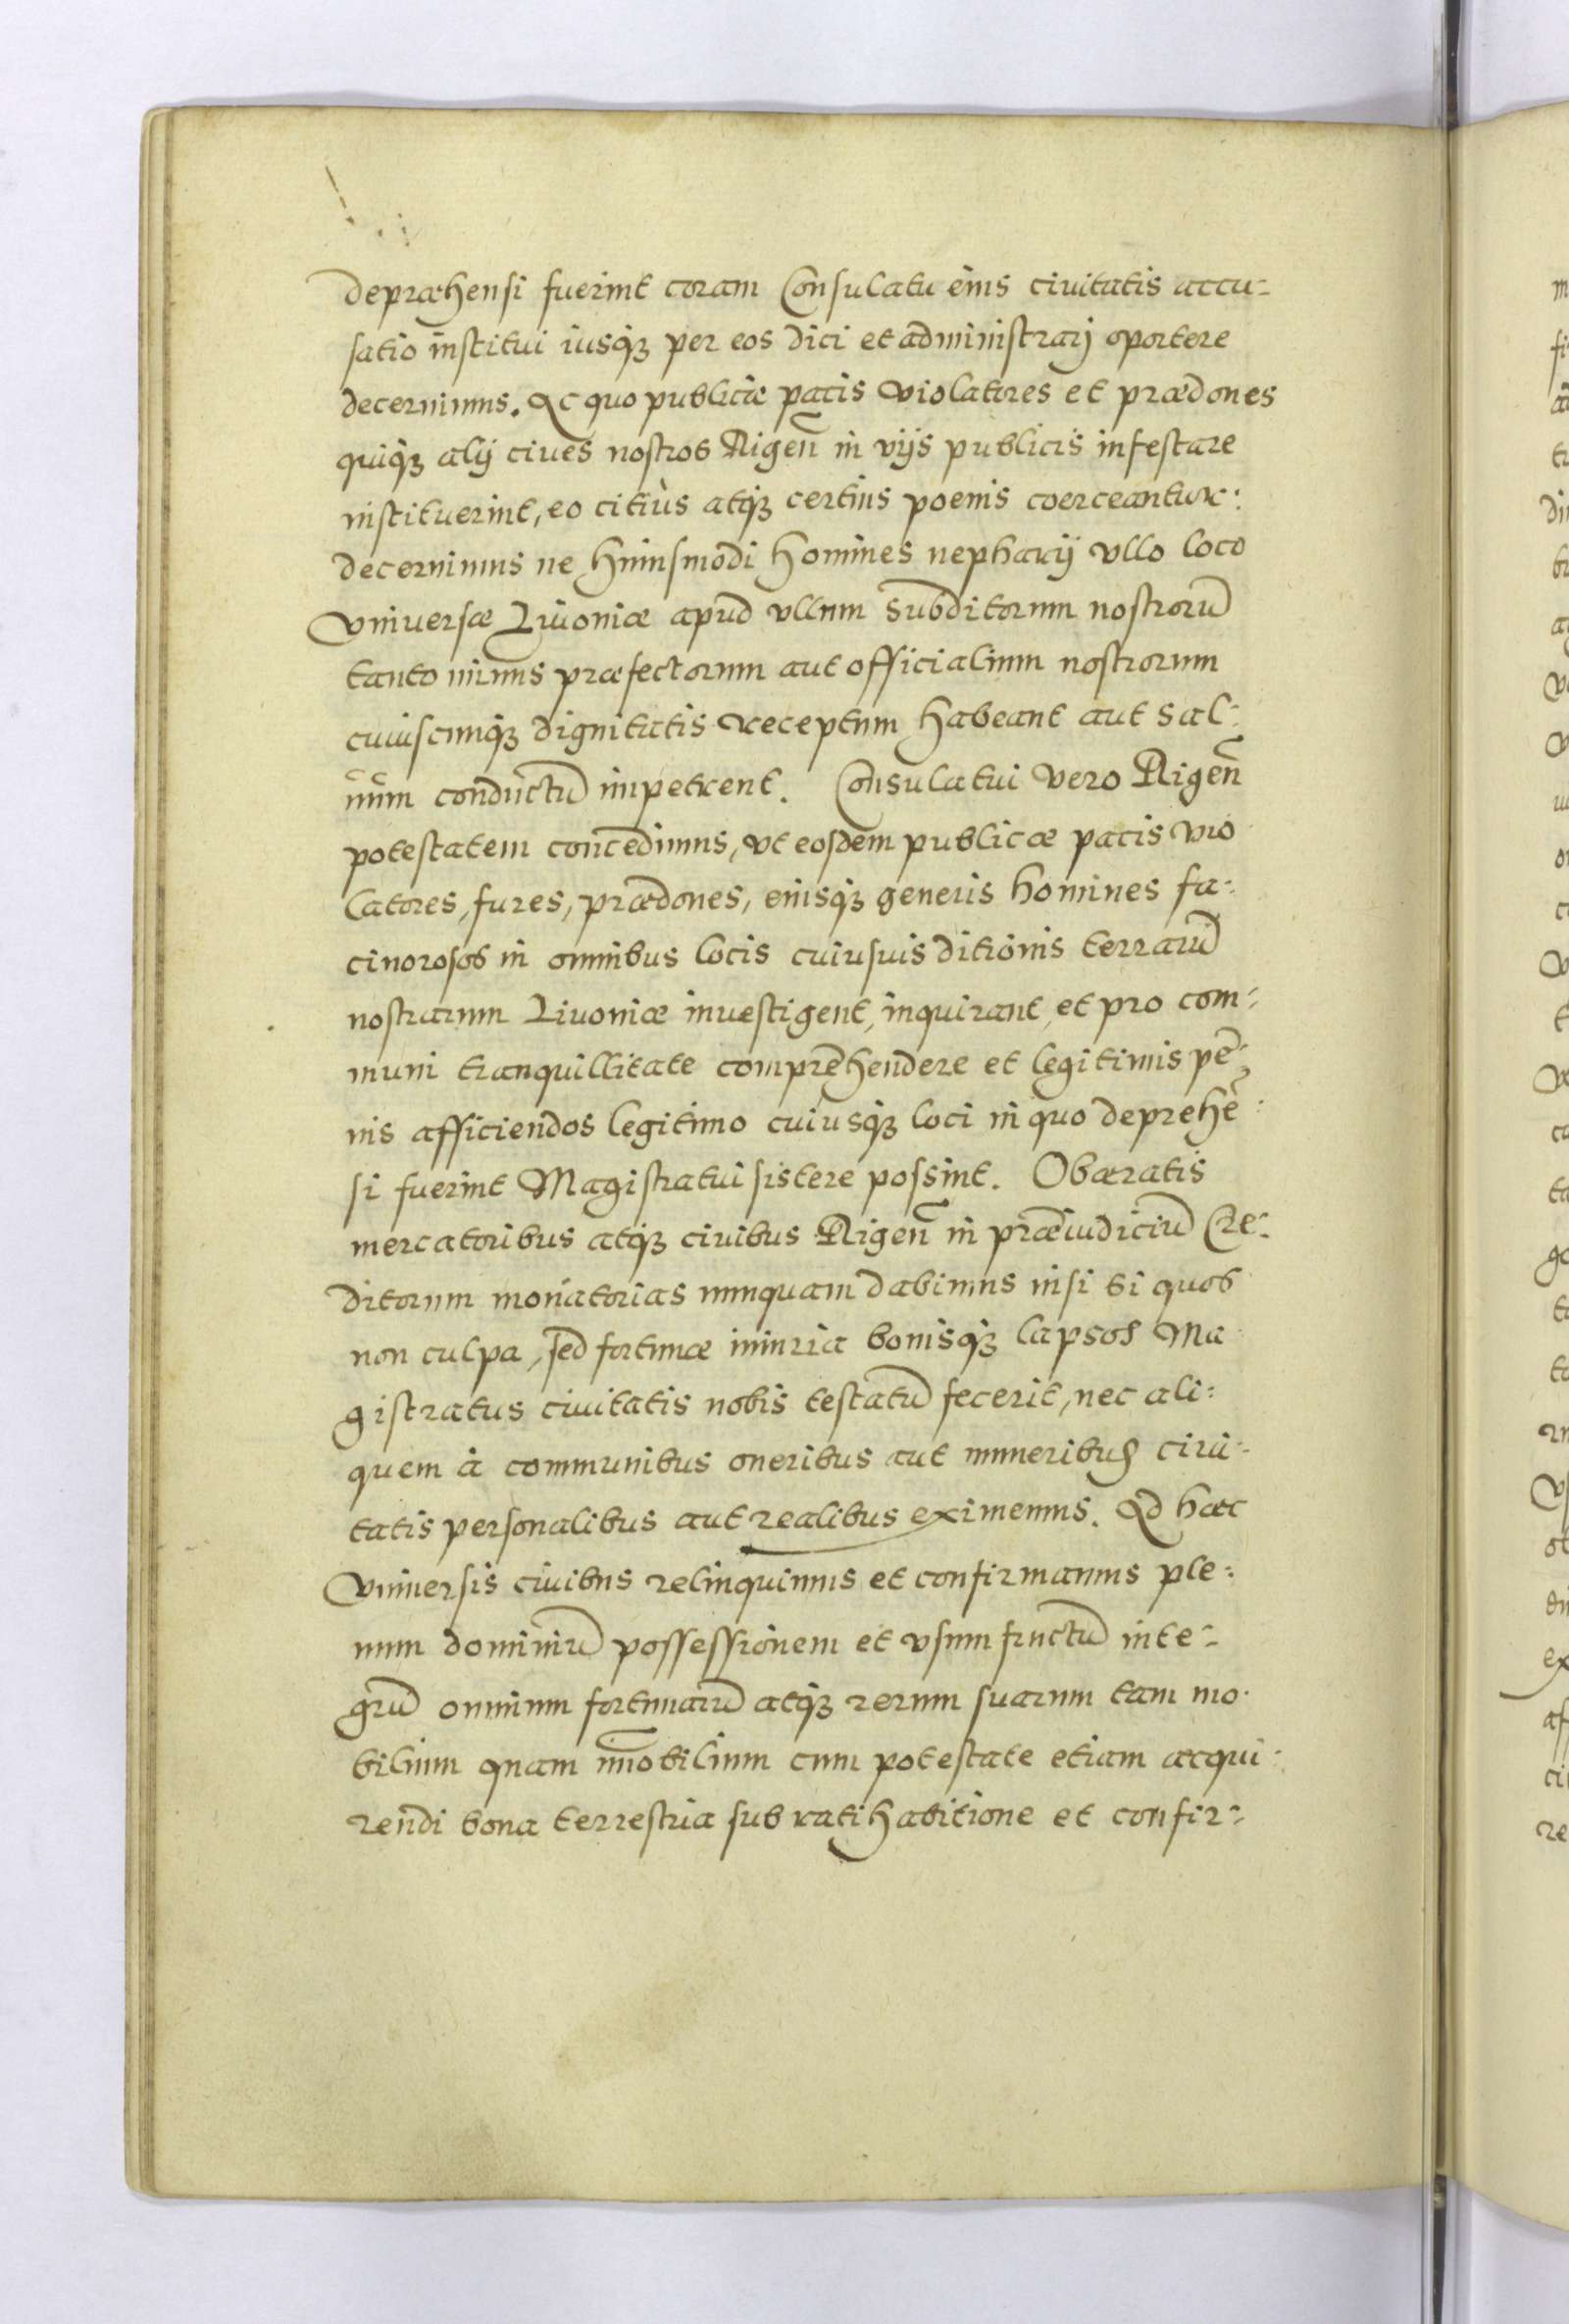 depræhensi fuerint coram Consulatu eius civitatis accu-
satio institui iusq3 per eos dici et administrarj oportere
decernimus. Ac quo publicæ pacis violatores et prædones
quiq3 alij cives nostros Rigeñ in vijs publicis infestare
instituerint, eo citiùs atq3 certius poenis coerceantur:
decernimus ne huiusmodi homines nepharij vllo loco
Vniversæ Livoniæ apud vllum subditorum nostrorū
tanto minus præfectorum aut officialium nostrorum
cuiuscunq3 dignitatis receptum habeant aut sal-
uum conductū impetrent. Consulatui vero Rigeñ
potestatem concedimus, vt eosdem publicæ pacis vio
latores, fures, prædones, eiusq3 generis homines fa-
cinorosos in omnibus locis cuiusuis ditionis terrarū
nostrarum Livoniæ investigent, inquirant, et pro com-
muni tranquillitate comprehendere et legitimis pę-
nis afficiendos legitimo cuiusq3 loci in quo deprehē-
si fuerint Magistratui sistere possint. Obæratis
mercatoribus atq3 civibus Rigeñ in præiudiciū Cre-
ditorum moratorias nunquam dabimus nisi ei quos
non culpa, sed fortunæ iniuria bonisq3 lapsos Ma
gistratus civitatis nobis testatū fecerit, nec ali-
quem à communibus oneribus aut muneribus civi-
tatis personalibus aut realibus eximemus. Ad hæc
Vniversis civibus relinquimus et confirmamus ple-
num dominiū possessionem et vsumfructū inte-
grū omnium fortunarū atq3 rerum suarum tam mo-
bilium quam im̄obilium cum potestate etiam acqui-
rendi bona terrestria sub ratihabitione et confir-